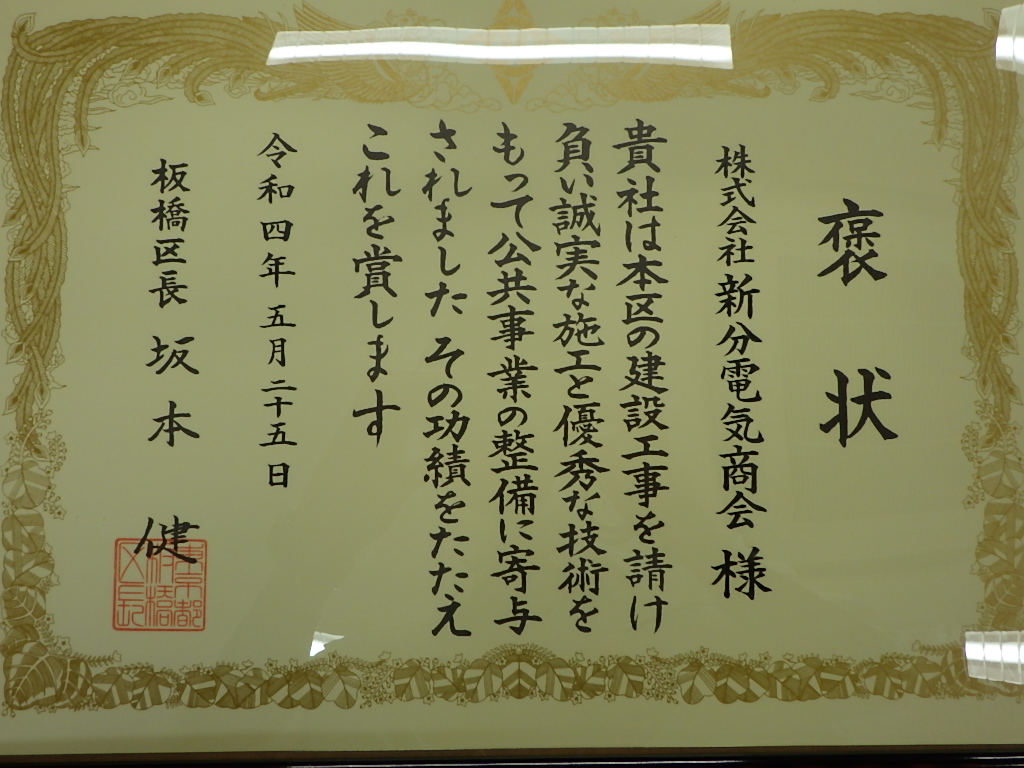 褒状
株式会社 新分電気商会 様
貴社は本区の建設工事を請け
負い誠実な施工と優秀な技術を
もって公共事業の整備に寄与
されました その功績をたたえ
これを賞します
令和四年五月二十五日
板橋区長 坂本 健
東京都
板橋
区長